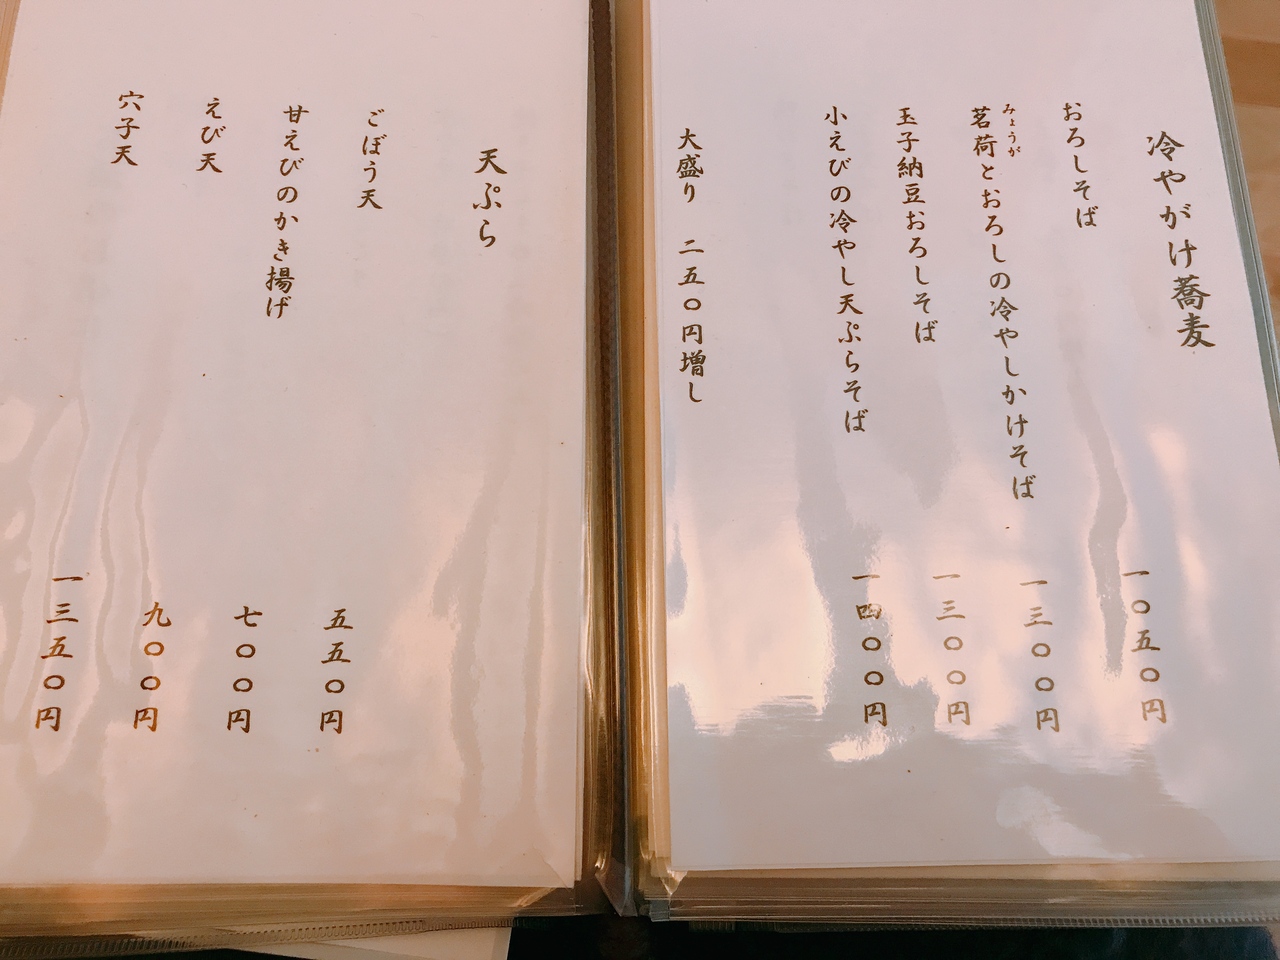 冷やがけ蕎麦
おろしそば 一〇五〇円
みょうが
茗荷とおろしの冷やしかけそば 一三〇〇円
玉子納豆おろしそば 一三〇〇円
小えびの冷やし天ぷらそば 一四〇〇円
大盛り 二五〇円増し
天ぷら
ごぼう天 五五〇円
甘えびのかき揚げ 七〇〇円
えび天 九〇〇円
穴子天 一三五〇円